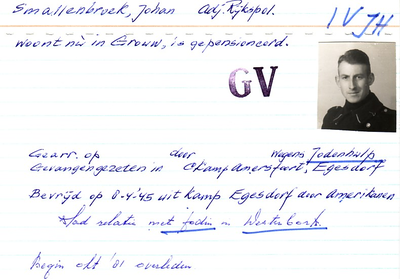 Smallenbroek, Johan Adj. Rijkspol. IV JH.
woont nù in Grouw, is gepensioneerd.
GV
Gearr. op door wegens Jodenhulp
Gevangengezeten in Kamp Amersfoort, Egesdorf
Bevrijd op 8-4-'45 uit Kamp Egesdorf door Amerikanen
Had relatie met Jodin in Westerbork.
Begin okt '81 overleden